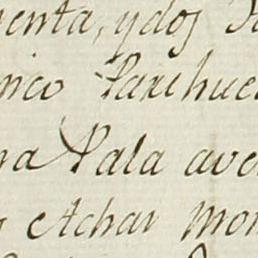 venta, y dos
nico Parihue
na Pala ave
y Achar mon